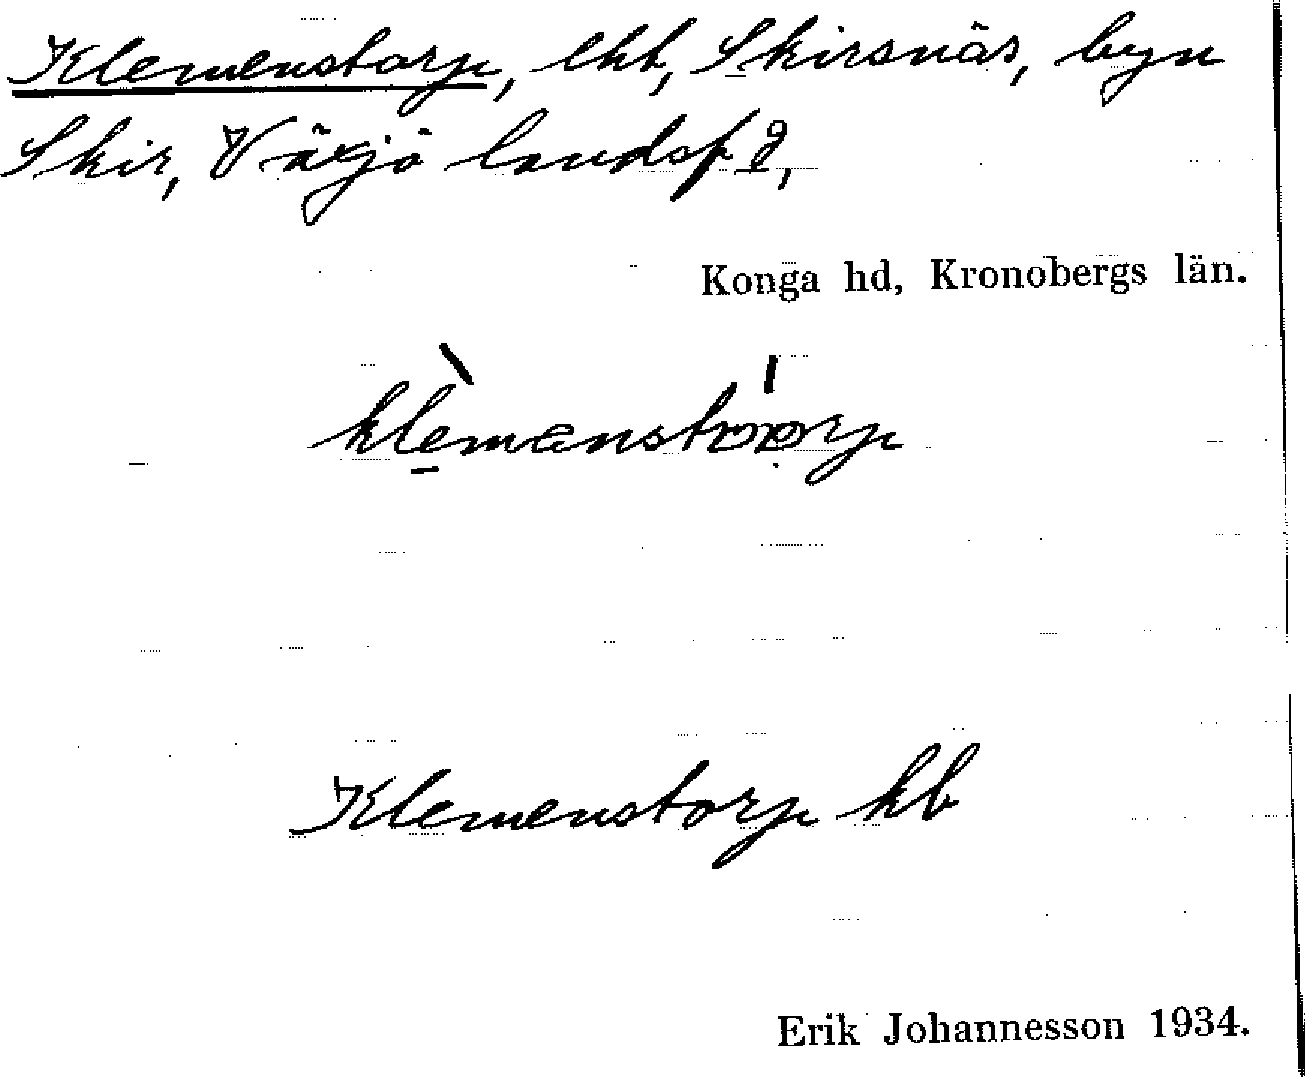 Klemenstorp, lht, Skirsnäs, byn
Skir, Växjö landsf d,
Konga hd, Kronobergs län.
klemanstorp
Klemenstorp hb
Erik Johannesson 1934.